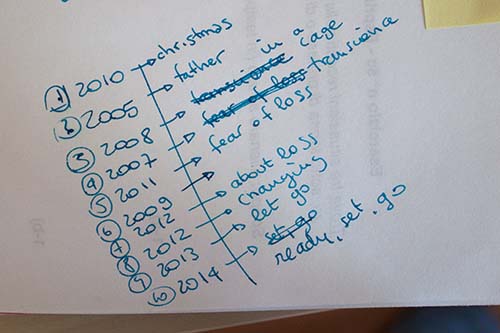 1 2010 → christmas
2 2005 → father
3 2008 → in a cage
4 2007 → transience
5 2011 → fear of loss
6 2009 → about loss
7 2012 → changing
8 2012 → let go
9 2013
10 2014 → ready, set, go